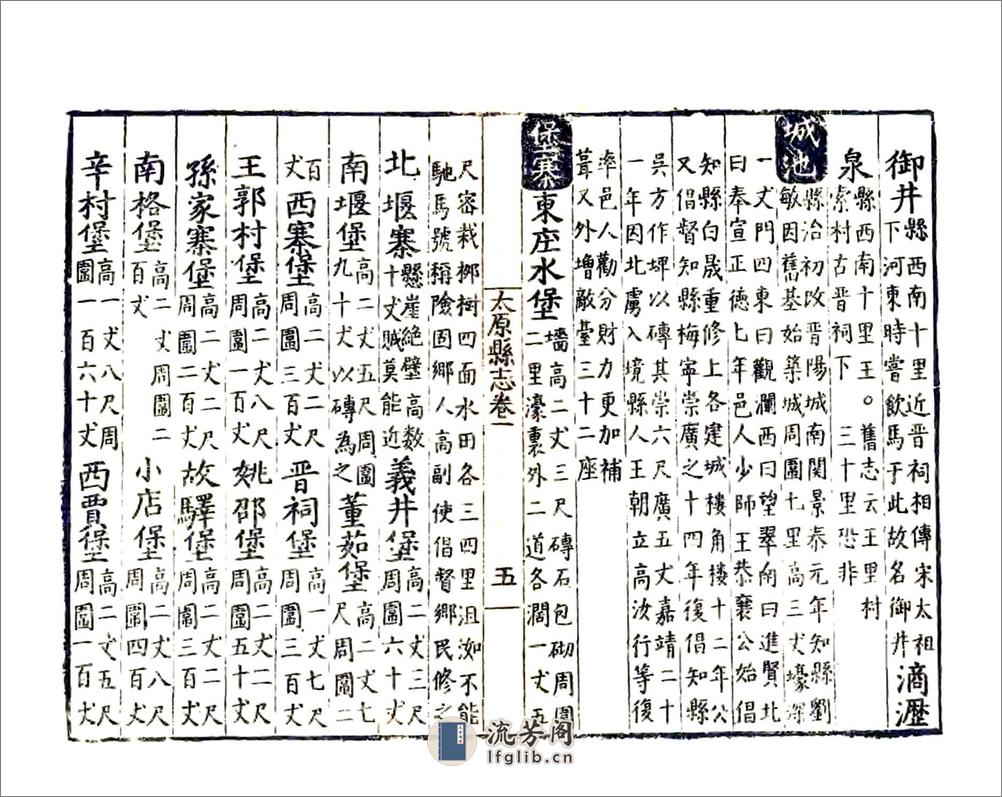 御井縣西南十里近晋祠相傳宋太祖下河東時嘗飲馬于此故名御井滴瀝
泉縣西南十里王索村古晋祠下。舊志云王里村三十里恐非
城池縣治初改晋陽城南関景泰元年知縣劉敏因舊基始築城周圍七里高三丈壕深
一丈門四東曰觀瀾西曰望翠南曰進賢北曰奉宣正德七年邑人少師王恭襄公始倡
知縣白晟重修上各建城樓角樓十二年公又倡督知縣梅寧崇廣之十四年復倡知縣
吳方作埤以磚其崇六尺廣五丈嘉靖二十一年因北虜入境縣人王朝立高汝行等復
率邑人勸分財力更加補葺又外增敵臺三十二座
堡寨東庄水堡墻高二丈三尺磚石包砌周圍二里濠裏外二道各濶一丈五
太原縣志卷一 五
尺密栽柳樹四面水田各三四里沮洳不能馳馬號稱險固鄉人高副使倡督鄉民修之
北堰寨懸崖絶壁高数十丈賊莫能近義井堡高二丈三尺周圍六十丈
南堰堡高二丈五尺周圍九十丈以磚為之董茹堡高二丈七尺周圍二
百丈西寨堡高二丈二尺周圍三百丈晋祠堡高一丈七尺周圍三百丈
王郭村堡高二丈八尺周圍一百丈姚邵堡高二丈二尺周圍五十丈
孫家寨堡高二丈二尺周圍二百丈故驛堡高二丈二尺周圍三百丈
南格堡高二丈周圍二百丈小店堡高二丈八尺周圍四百丈
辛村堡高一丈八尺周圍一百六十丈西賈堡高二丈五尺周圍一百丈
流芳阁
lfglib.cn